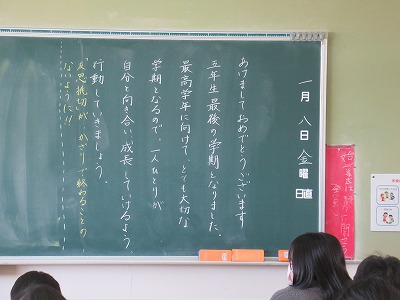 一月八日金曜日
日直
あけましておめでとうございます
五年生最後の学期となりました。
最高学年に向けて、とても大切な
学期となるので、一人ひとりが
自分と向き合い、成長していけるよう、
行動していきましょう。
かざりで終わることの
ないように!!